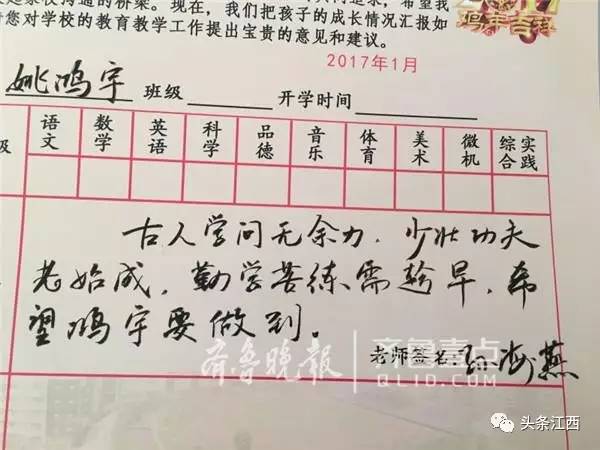 家校沟通的桥梁。现在，我们把孩子的成长情况汇报如
请您对学校的教育教学工作提出宝贵的意见和建议。
鸡年吉祥
2017年1月
姚鸿宇 班级 开学时间
级 语文 数学 英语 科学 品德 音乐 体育 美术 微机 综合实践
古人学问无余力，少壮功夫
老始成，勤学苦练需趁早，希
望鸿宇要做到。
老师签名：孙海燕
齐鲁晚报 齐鲁壹点
QLID.COM
头条江西